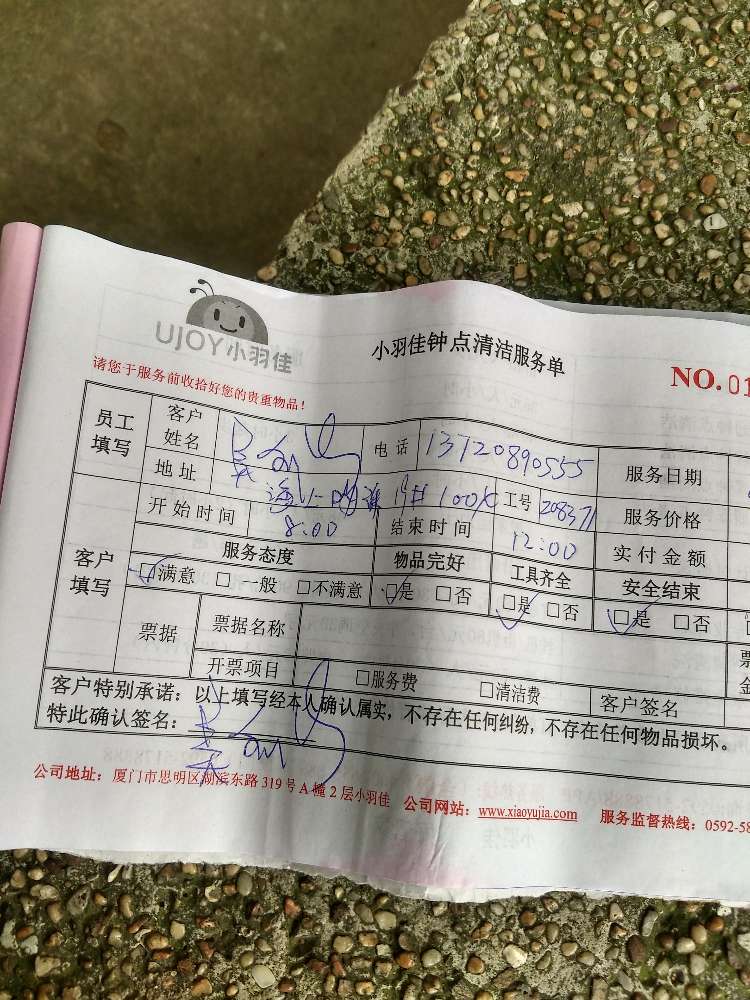 UJOY小羽佳
小羽佳钟点清洁服务单
NO.01
请您于服务前收拾好您的贵重物品!
员工填写 客户姓名 吴 电话 13720890555 服务日期
地址 海上 19# 100 工号 208371 服务价格
开始时间 8:00 结束时间 12:00 实付金额
客户填写 服务态度 物品完好 工具齐全 安全结束
☑满意 □一般 □不满意 ☑是 □否 ☑是 □否 ☑是 □否
票据 票据名称
开票项目 □服务费 □清洁费 客户签名
客户特别承诺:以上填写经本人确认属实,不存在任何纠纷,不存在任何物品损坏。
特此确认签名: 吴
公司地址:厦门市思明区湖滨东路 319 号 A 幢 2 层小羽佳 公司网站:www.xiaoyujia.com 服务监督热线:0592-58